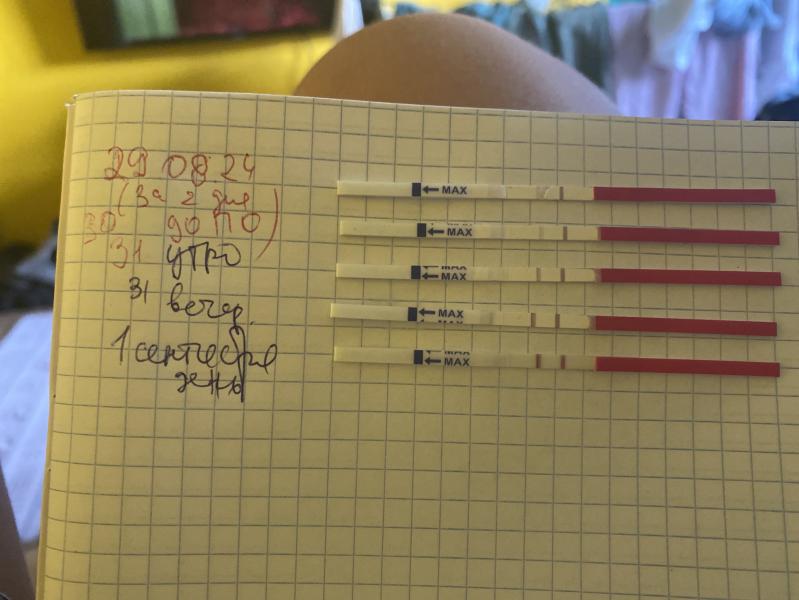 29 08 24
(За 2 дня
30 до ПО)
31 утро
31 вечер
1 сентября
день
MAX
MAX
MAX
MAX
MAX
MAX
MAX
MAX